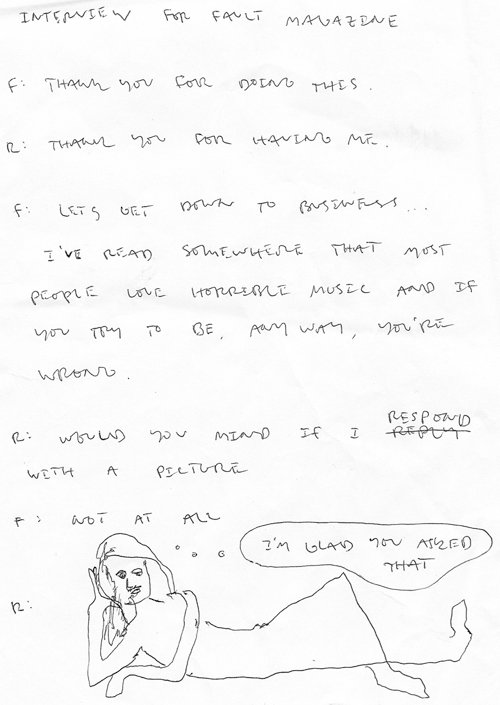 INTERVIEW FOR FAULT MAGAZINE
F: THANK YOU FOR DOING THIS.
R: THANK YOU FOR HAVING ME.
F: LETS GET DOWN TO BUSINESS...
I'VE READ SOMEWHERE THAT MOST
PEOPLE LOVE HORRIBLE MUSIC AND IF
YOU TRY TO BE, ANY WAY, YOU'RE
WRONG.
R: WOULD YOU MIND IF I REPLY RESPOND
WITH A PICTURE
F: NOT AT ALL
R:
I'M GLAD YOU ASKED
THAT